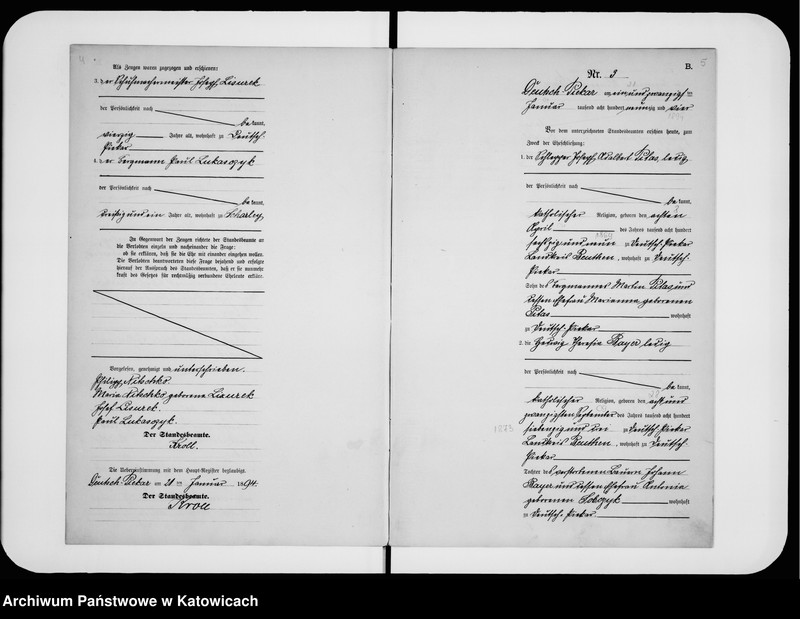 4
Als Zeugen waren zugezogen und erschienen:
3. der Schuhmachermeister Josef Lisurek
der Persönlichkeit nach
be kannt,
vierzig Jahre alt, wohnhaft zu Deutsch-
Piekar
4. der Bergmann Paul Lukasczyk
der Persönlichkeit nach
be kannt,
dreißig und ein Jahre alt, wohnhaft zu Scharley.
In Gegenwart der Zeugen richtete der Standesbeamte an
die Verlobten einzeln und nacheinander die Frage:
ob sie erklären, daß sie die Ehe mit einander eingehen wollen.
Die Verlobten beantworteten diese Frage bejahend und erfolgte
hierauf der Ausspruch des Standesbeamten, daß er sie nunmehr
kraft des Gesetzes für rechtmäßig verbundene Eheleute erkläre.
Vorgelesen, genehmigt und unterschrieben.
Philipp Nitschko.
Maria Nitschko geborene Lisurek
Josef Lisurek.
Paul Lukasczyk.
Der Standesbeamte.
Kroll.
Die Uebereinstimmung mit dem Haupt-Register beglaubigt.
Deutsch-Piekar am 21 ten Januar 1894.
Der Standesbeamte.
Kroll
B.
5
Nr. 3
Deutsch-Piekar am ein und zwanzigsten
Januar tausend acht hundert neunzig und vier
1894
Vor dem unterzeichneten Standesbeamten erschienen heute, zum
Zweck der Eheschließung:
1. der Schlepper Josef Adalbert Pilas, ledig,
der Persönlichkeit nach
be kannt,
katholischer Religion, geboren den achten
April des Jahres tausend acht hundert
1869
sechzig und neun zu Deutsch-Piekar
Landkreis Beuthen, wohnhaft zu Deutsch-
Piekar
Sohn des Bergmannes Martin Pilas und
dessen Ehefrau Marianna geborenen
Pilas wohnhaft
zu Deutsch-Piekar
2. die Hedwig Theresia Bayer, ledig
der Persönlichkeit nach
be kannt,
katholischer Religion, geboren den acht und
zwanzigsten September des Jahres tausend acht hundert
1873
siebenzig und drei zu Deutsch-Piekar
Landkreis Beuthen, wohnhaft zu Deutsch-
Piekar
Tochter des verstorbenen Bauern Johann
Bayer und dessen Ehefrau Antonia
geborenen wohnhaft
zu Deutsch-Piekar
Archiwum Państwowe w Katowicach